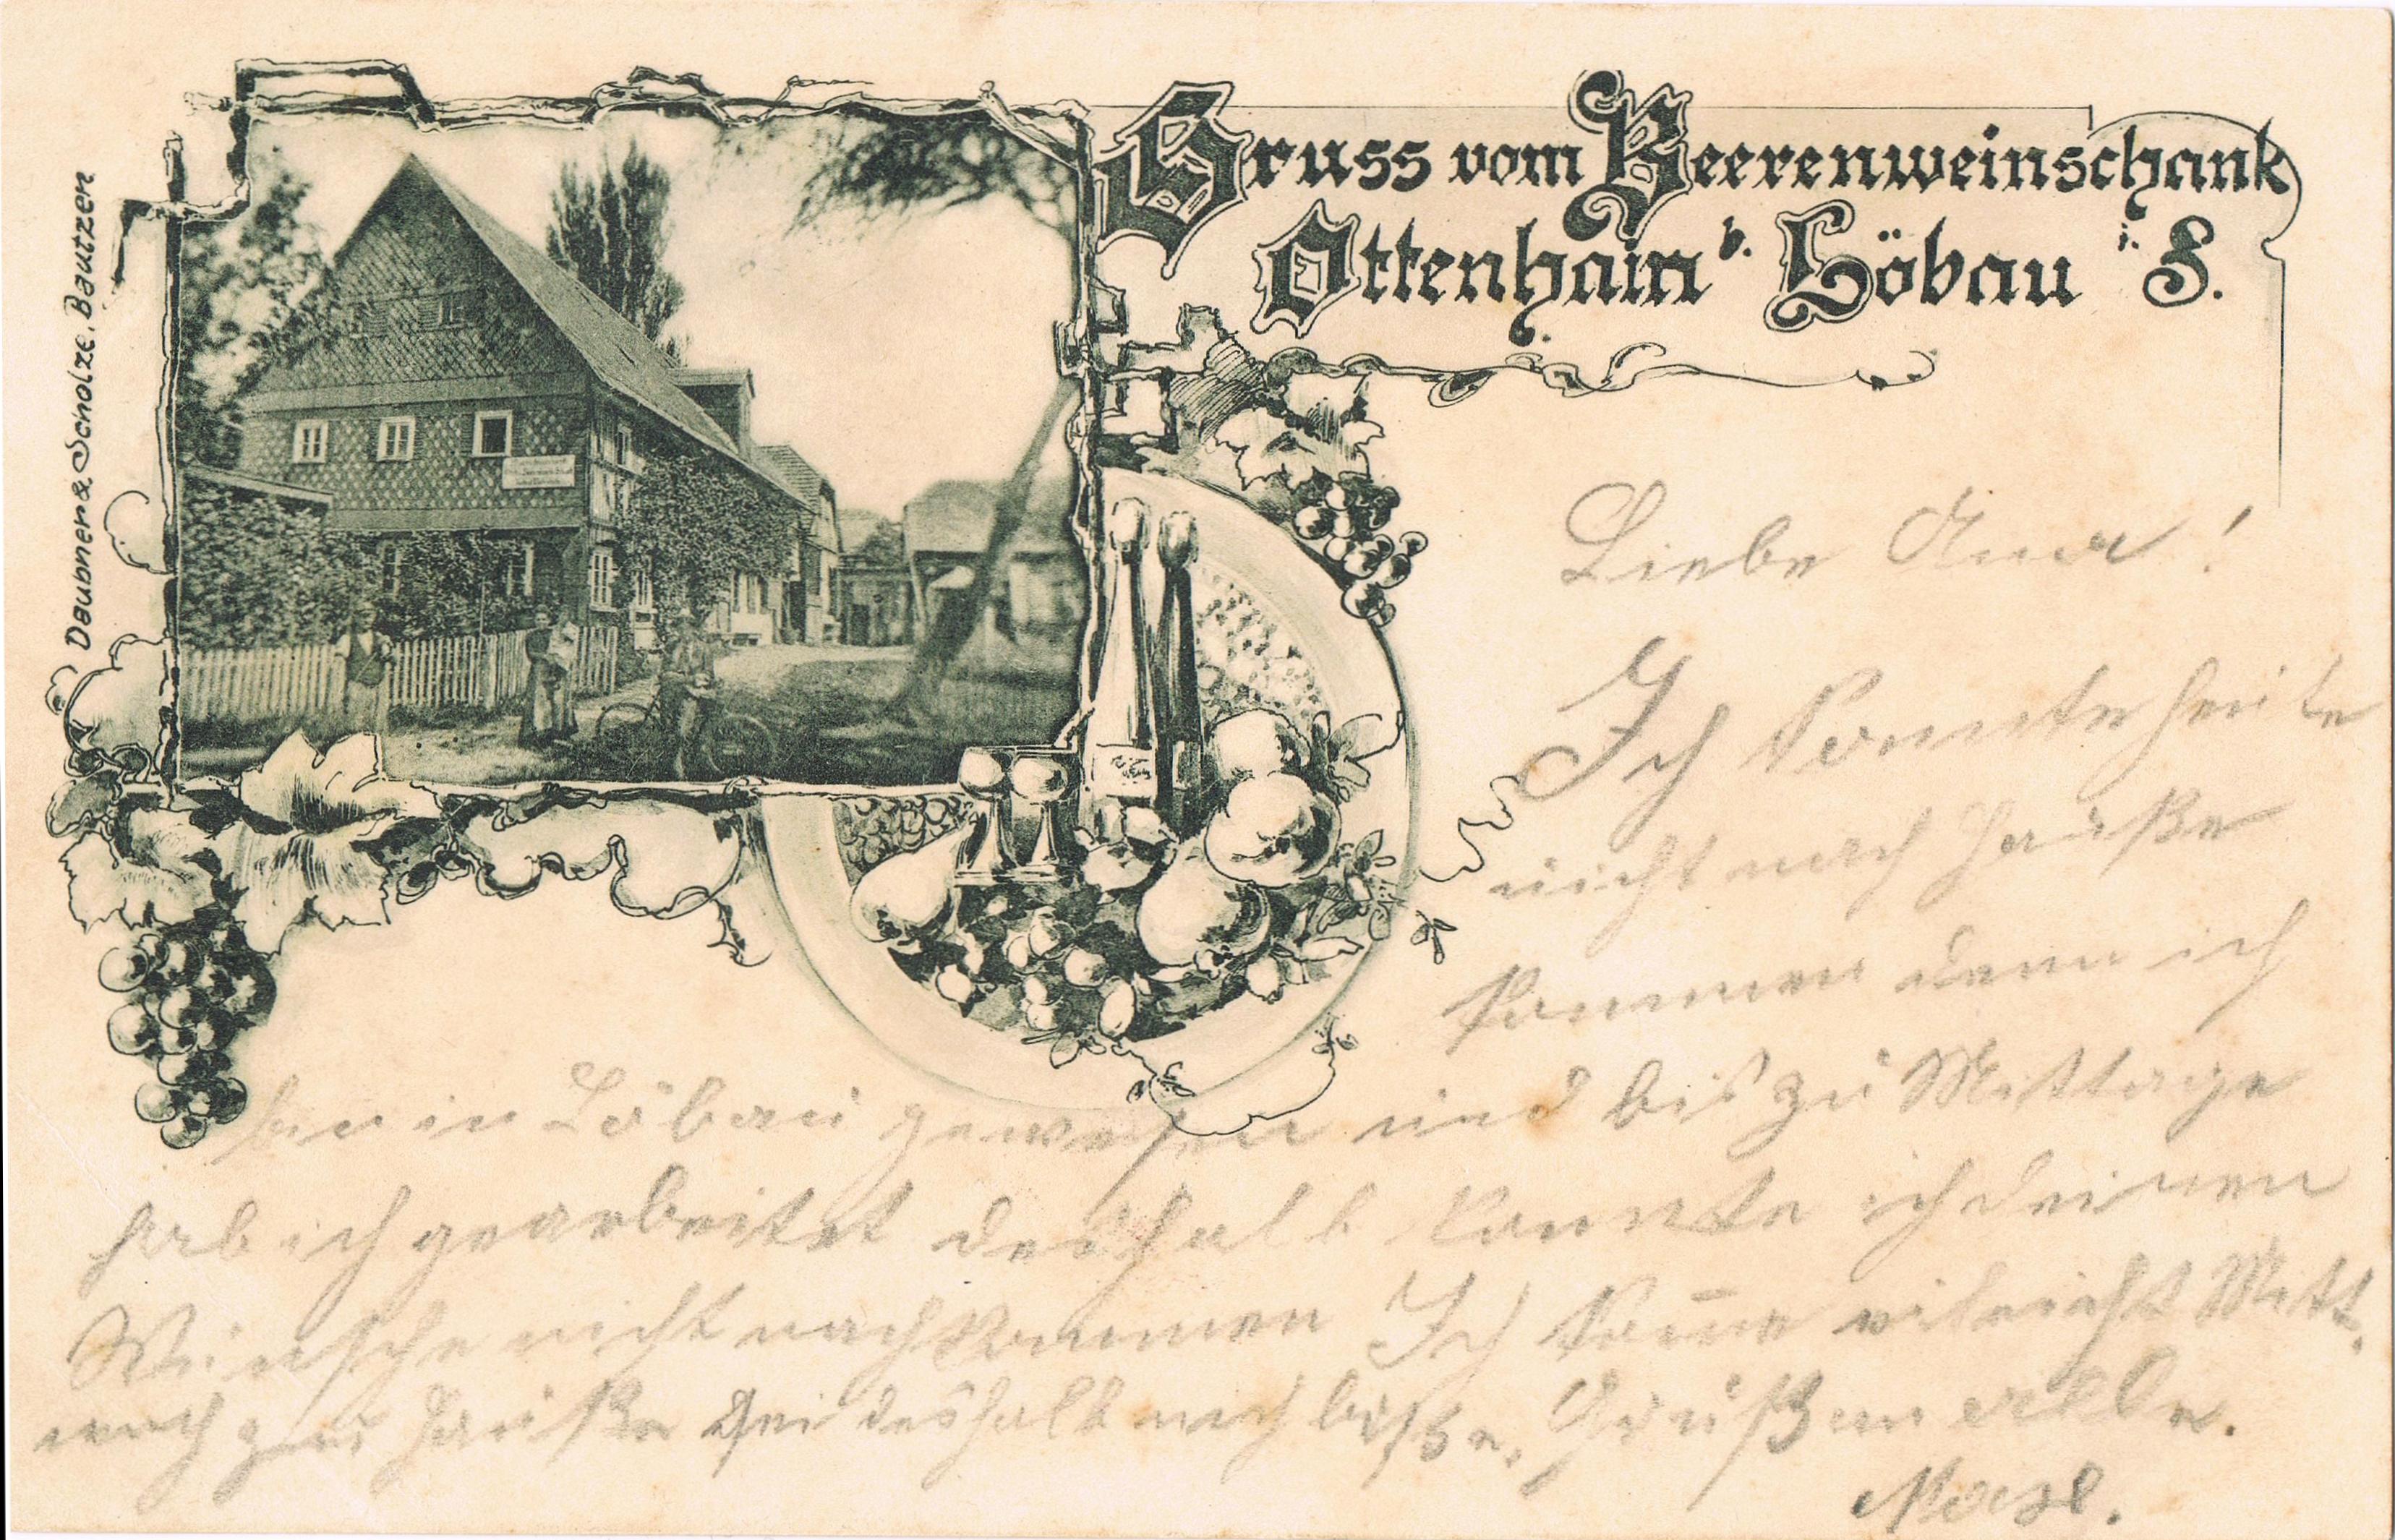 Gruss vom Beerenweinschank
Ottenhain b. Löbau i. S.
Daubner & Scholze, Bautzen
Liebe
Ich konnte heute
nicht nach Hauße
kommen denn ich
bin in Löbau gewesen und bis zu Mittage
hab ich gearbeitet deshalb konnte ich deinen
Wunsche nicht nachkommen Ich komme vileicht Mitt
woch zu Hauße Sei deshalb nich
alle.